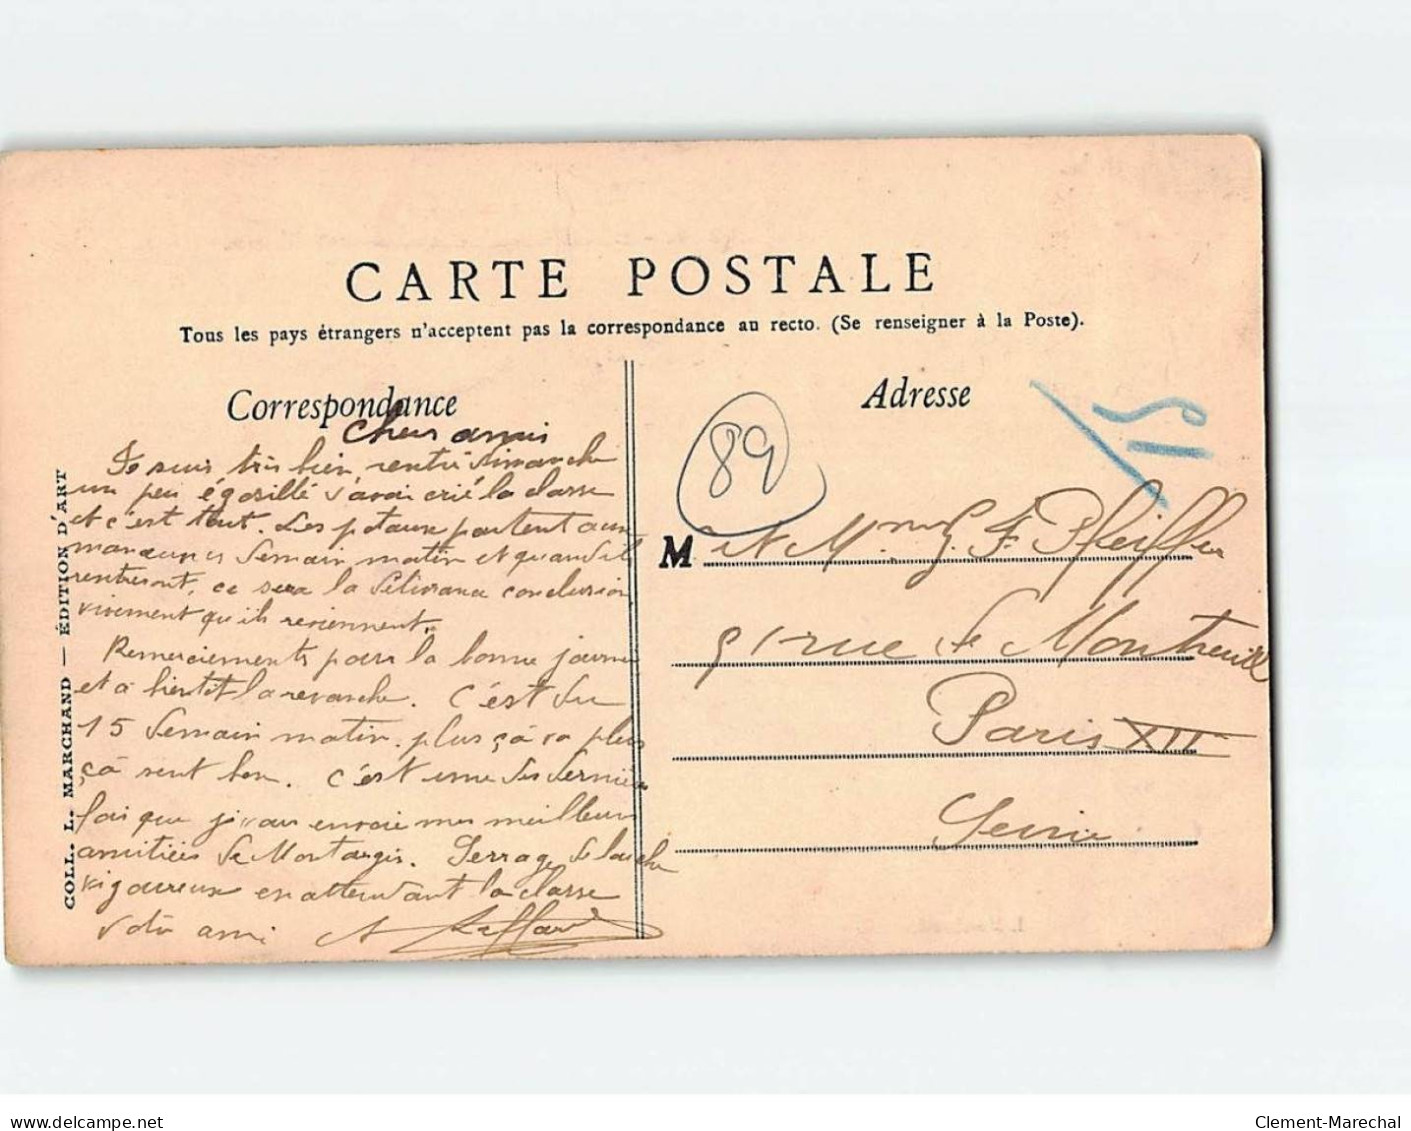 CARTE POSTALE
Tous les pays étrangers n'acceptent pas la correspondance au recto. (Se renseigner à la Poste).
Correspondance
Chers amis
Je suis très bien rentré dimanche
un peu égosillé j'avais crié la classe
et c'est tout. Les poteaux partent aux
manœuvres demain matin et quand ils
rentreront, ce sera la délivrance conclusion
vivement qu'ils reviennent.
Remerciements pour la bonne journée
et à bientôt la revanche. C'est du
15 demain matin. plus çà va plus
çà sent bon. C'est une des dernières
fois que je vous envoie mes meilleurs
amitiés de Montargis. Serrage de louche
vigoureux en attendant la classe
votre ami A
COLL. L. MARCHAND — ÉDITION D'ART
Adresse
89
15
M et Mme F. Pfeiffer
91 rue de Montreuil
Paris XII
Seine
www.delcampe.net
Clement-Marechal